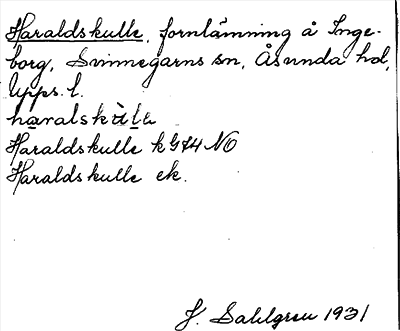 Haraldskulle, fornlämning å Inge-
borg, Svinnegarns sn, Åsunda hd,
Upps. l.
Haraldskulle k G74 NO
Haraldskulle ek.
J. Sahlgren 1931